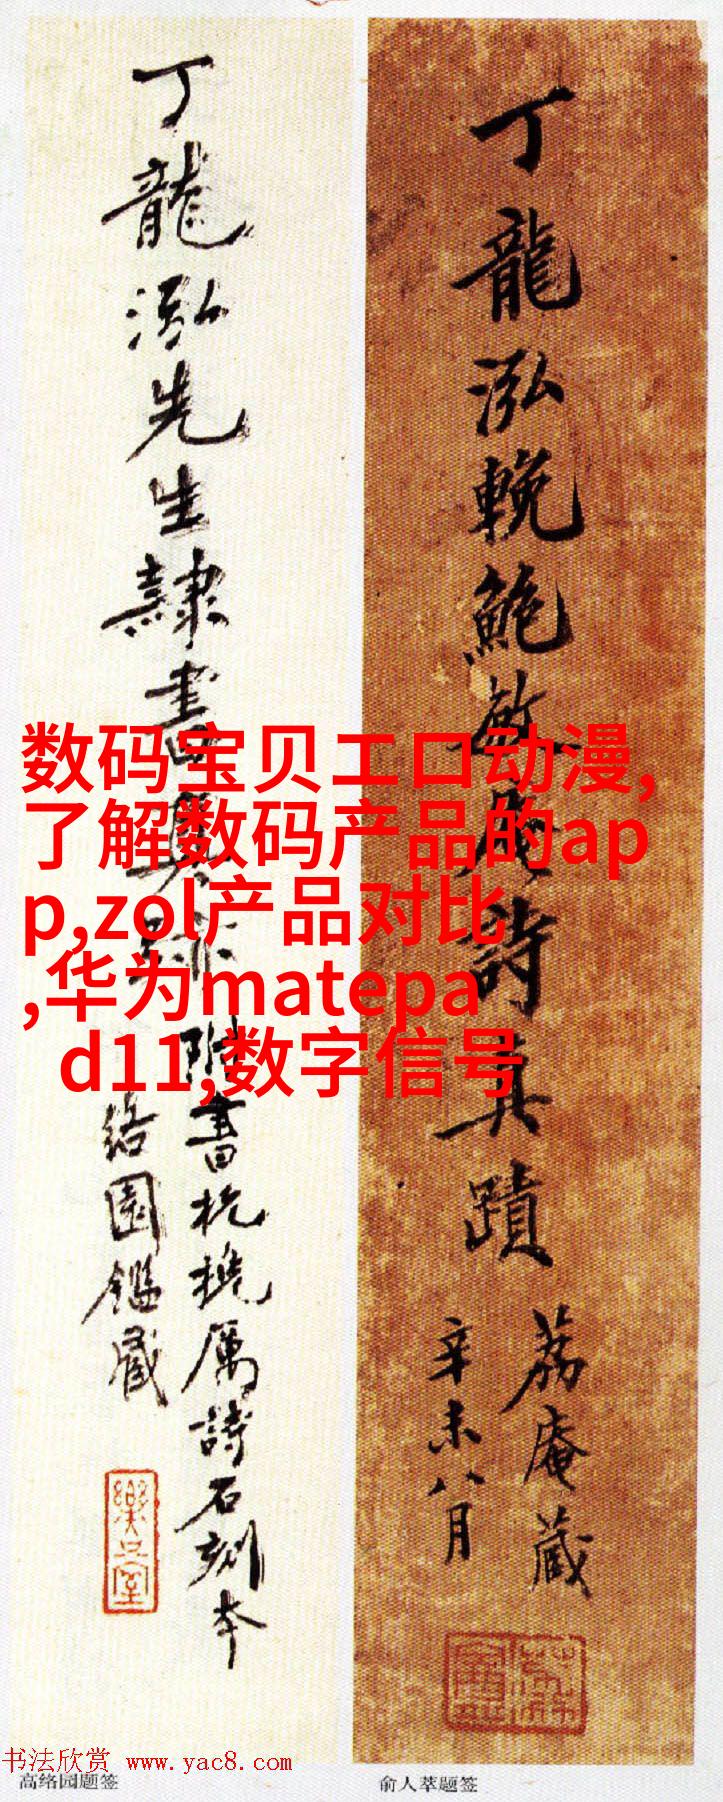 丁龍泓先生隸書真蹟
附書杭挽厲詩石刻本
络園鑑藏
丁龍泓輓鮑敬庵詩真蹟
荔庵藏
辛未八月
数码宝贝工口动漫,
了解数码产品的ap
p,zol产品对比
,华为matepa
d11,数字信号
书法欣赏 www.yac8.com
高络园题签
俞人萃题签